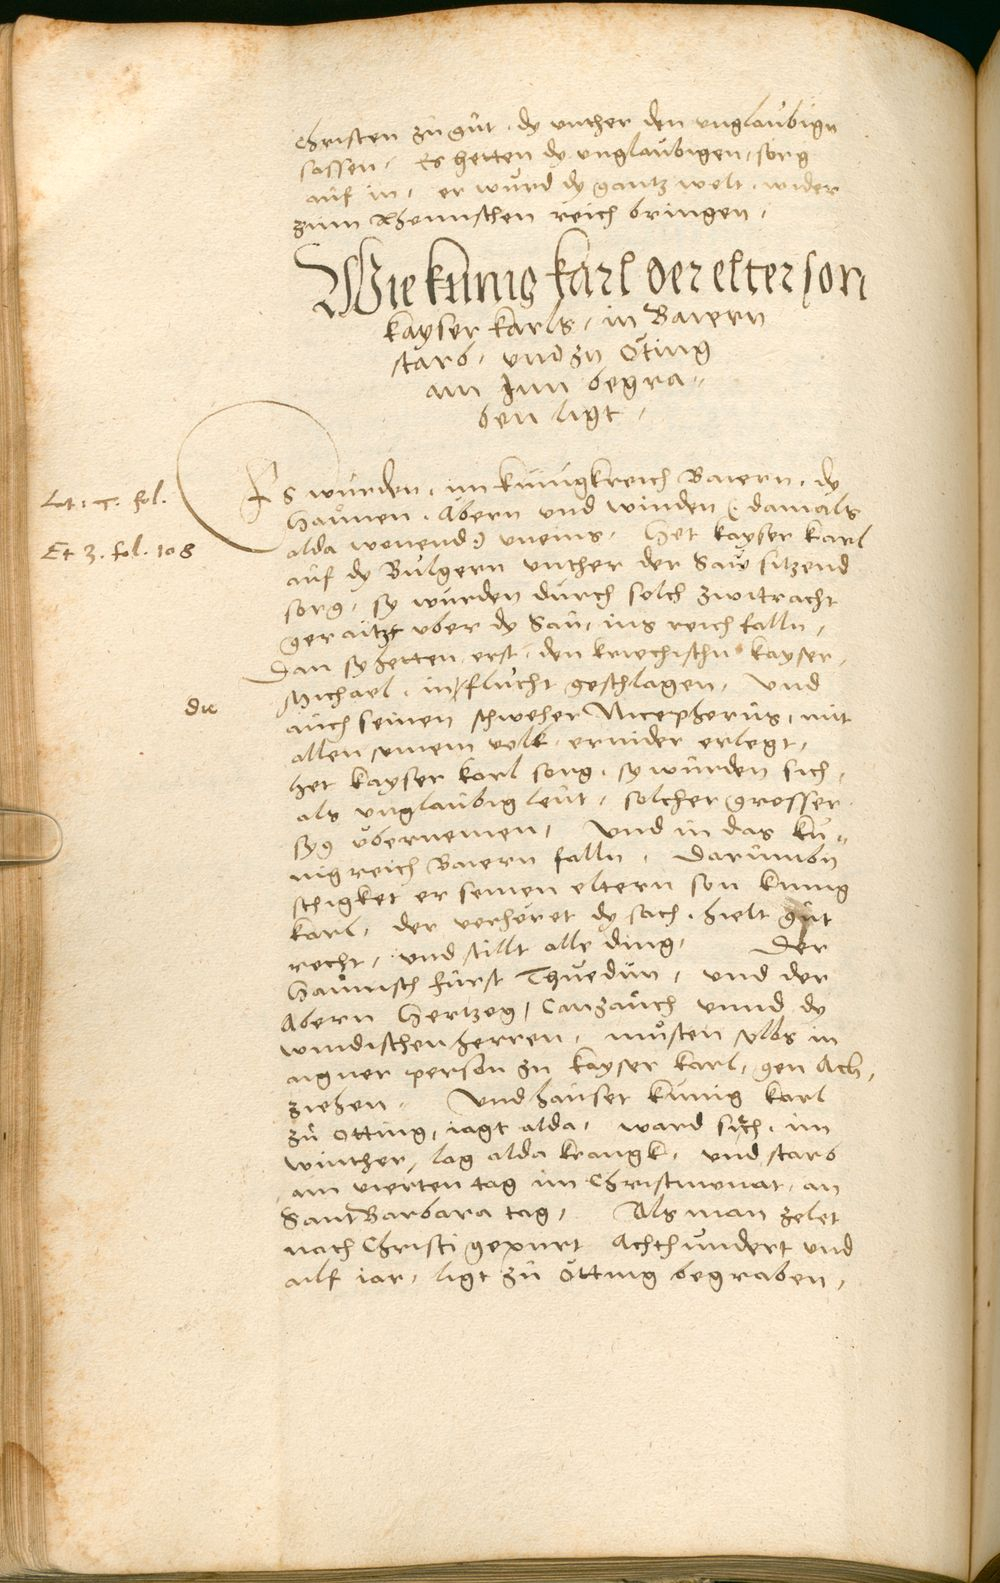 christen zu gut, dy unther den unglaubign
sassen, Es hetten dy unglaubigen, sorg
auf in, er wurd dy gantz welt, wider
zum Rhömischen reich bringen,
Wie kunig karl der elter son
kayser karls, in Baiern
starb, und zu Öting
am Inn begra„
ben ligt,
Lat: fol.
Et 3. fol. 108
Es wurden, im kunigkreich Baiern, dy
Haunen, Abern und winden (: damals
alda wonend :) uneins. Het kayser karl
auf dy Bulgern unther der Saw sitzend
sorg, sy wurden durch solch zwitracht
geraitzt uber dy Sau, ins reich falln,
Dan sy hetten erst, den kriechischn kayser,
die
Michael, in flucht geschlagen, und
auch seinen schweher Nicepherus, mit
allen seinem volk ernider erlegt,
het kayser karl sorg, sy wurden sich,
als unglaubig leut, solcher grosser
syg ubernemen, Und in das ku„
nigreich Baiern falln, Darumbn
schigket er seinen eltern son kunig
karl, der verhöret dy sach, hielt gut
recht, und stillt alle ding, Der
Haunisch furst Thuedun, und der
Abern Hertzog, Canzauch unnd dy
windischen herren, muosten selbs in
aigner person zu kayser karl, gen Ach,
ziehen. Und hauset kunig karl
zu Otting, iagt alda, ward sich, im
winther, lag alda krangk, und starb
am vierten tag im Christmonat, an
Sant Barbara tag, Als man zelet
nach Christi gepurt Achthundert und
ailf iar, ligt zu Ötting begraben,